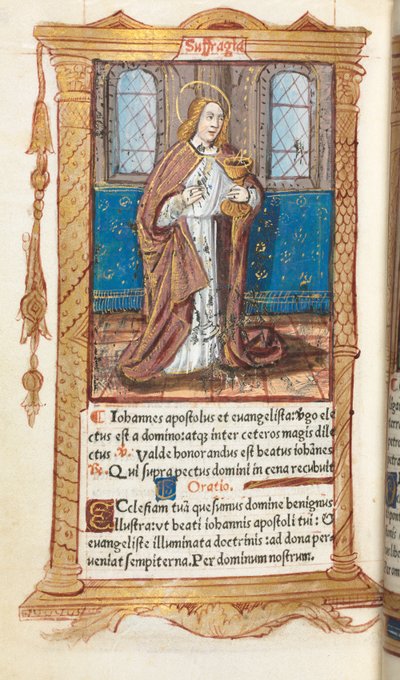 Suffragia
Iohannes apostolus et euangelista: vgo ele
ctus est a domino: atq; inter ceteros magis dile
ctus. V. Valde honorandus est beatus iohānes
R. Qui supra pectus domini in cena recubuit
Oratio.
ECclesiam tuā quesumus domine benignus
illustra: vt beati iohannis apostoli tui: &
euangeliste illuminata doctrinis: ad dona per-
ueniat sempiterna. Per dominum nostrum.